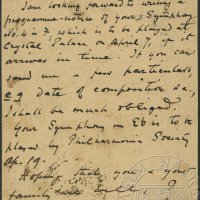 I am looking forward to writing a
programme-notice of yours Symphony
No. 4 in 7, which is to be played at
Crystal Palace on April 1, if it
arrives in time. If you can
send me a few particulars,
e g date of composition &c,
I shall be much obliged
Your Symphony in Eb is to be
played by Philharmonic Society
Ap. 19.
Hoping that you & your
family are well